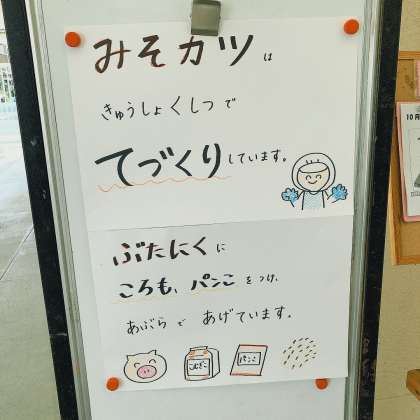 みそカツは
きゅうしょくしつで
てづくりしています。
ぶたにくに
ころも、パンこをつけ、
あぶらであげています。
こむぎこ
パンこ
10月